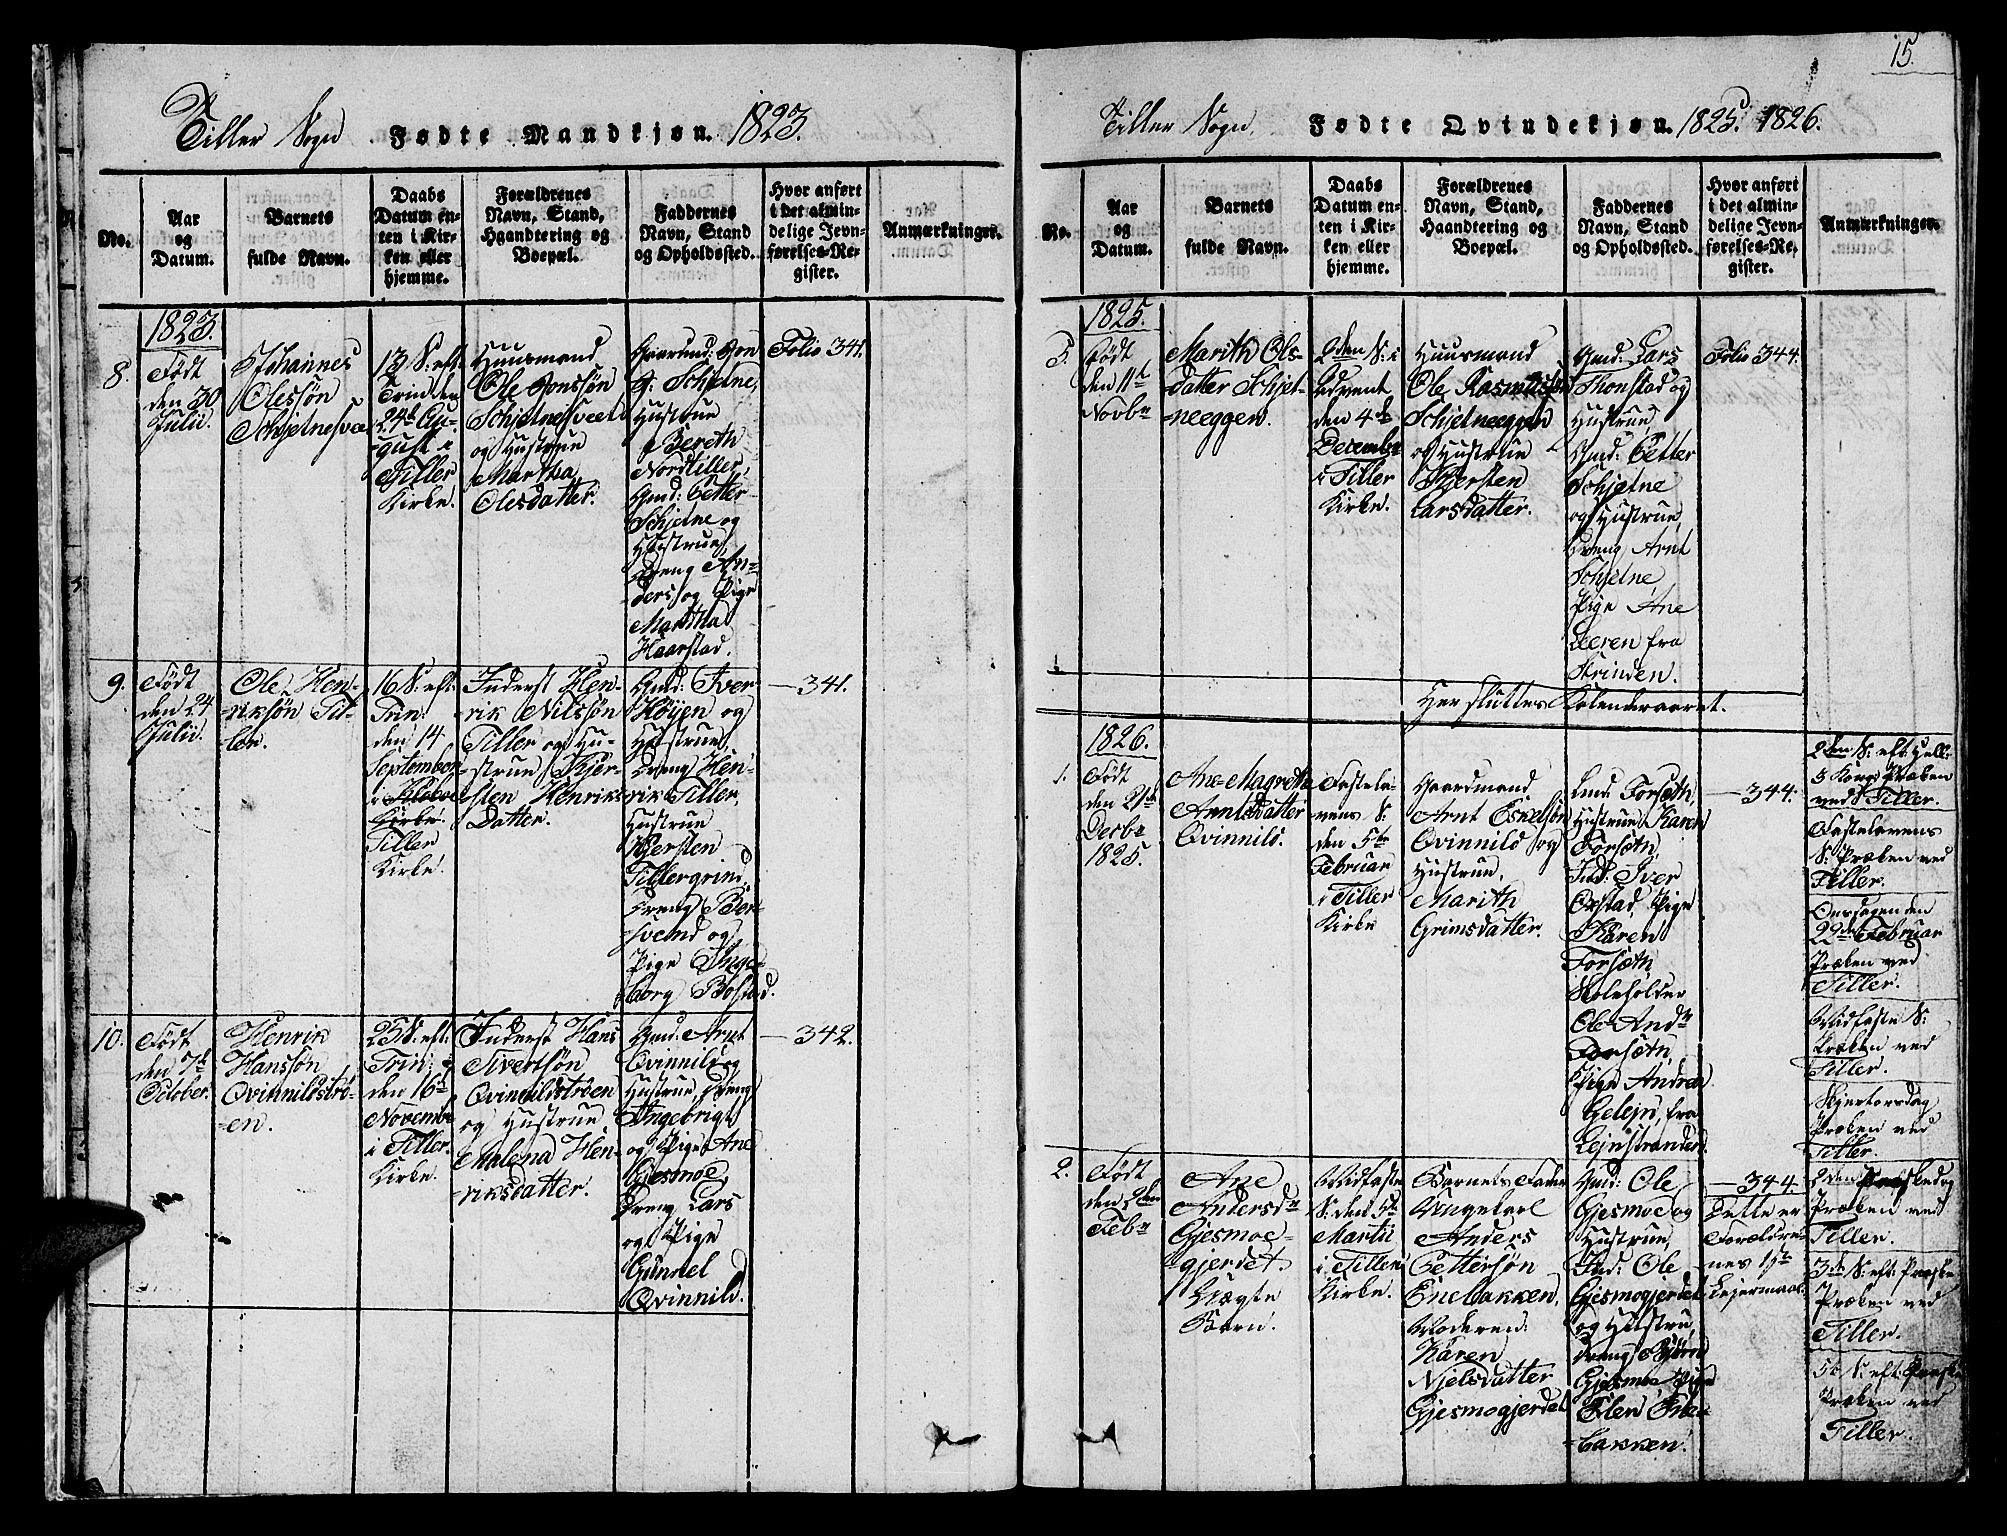 15.
Tiller Sogn Fødte Mandkjøn. 1823.
No.
Aar
og
Datum.
Barnets
fulde Navn.
Daabs
Datum en-
ten i Kir-
ken eller
hjemme.
Forældrenes
Navn, Stand,
Haandtering og
Boepæl.
Faddernes
Navn, Stand
og Opholdssted.
Hvor anført
i det almin-
delige Jevn-
førelses-Re-
gister.
Anmærkninger.
1823.
8.
Født
den 30
Julii.
Johannes
Olessøn
Schjetnesvee
13 S: eft:
Trin: den
24de Au-
gust i
Tiller
Kirke.
Huusmand
Ole Jonssøn
Schjetnesveen
og Hustrue
Martha
Olesdatter.
Gaarmd: Jon
J: Schjetne,
Hustrue
Bereth
Nordtiller,
Gmd: Petter
Schjetne og
Hustrue,
Dreng An-
ders og Pige
Martha
Haarstad.
Folio 341.
9.
Født
den 24
Julii.
Ole Hen-
riksøn Til-
ler.
16 S: eft:
Trin:
den 14
September
i Klæbo
Kirke.
Tiller
Kirke.
Inderst Hen-
rik Nilssøn
Tiller og Hu-
strue Kjer-
sten Henriks
Datter.
Gmd: Iver
Høyen og
Hustrue,
Dreng Hen-
rik Tiller,
Hustrue
Kjersten
Tillergrind,
Dreng Ber-
svend og
Pige Inge-
borg Bostad.
— 341.
10.
Født
den 7de
October.
Henrik
Hanssøn
Qvinnildstrø-
en.
25 S: eft:
Trin:
den 16de
Novembr
i Tiller
Kirke.
Inderst Hans
Sivertsøn
Qvinnildstrøen
og Hustrue
Malena Hen-
riksdatter.
Gmd: Arnt
Qvinnild og
Hustrue, Dreng
Ingebrigt
og Pige Ane
Gjesmoe,
Dreng Lars
og Pige
Gunnel
Qvinnild.
— 342.
Tiller Sogn. Fødte Qvindekjøn. 1825. 1826.
No.
Aar
og
Datum.
Barnets
fulde Navn.
Daabs
Datum en-
ten i Kir-
ken eller
hjemme.
Forældrenes
Navn, Stand,
Haandtering og
Boepæl.
Faddernes
Navn, Stand
og Opholdssted.
Hvor anført
i det almin-
delige Jevn-
førelses-Re-
gister.
Anmærkninger.
1825.
5.
Født
den 11te
Novbr
Marith Ols-
datter Schjet-
neeggen.
2den S: i
Advent
den 4de
Decembr
i Tiller
Kirke.
Huusmand
Ole Rasmussøn
Schjetneeggen
og Hustrue
Kjersten
Larsdatter.
Gmd: Lars
Thonstad og
Hustrue,
Gmd: Petter
Schjetne
og Hustrue,
Dreng Arnt
Schjetne,
Pige Ane
Leeren fra
Strinden.
Folio 344.
Her sluttes Kalenderaaret.
1826.
1.
Født
den 21de
Decbr
1825.
Ane Magrete
Arntsdatter
Qvinnild.
Fastela-
vens S:
den 5te
Februar
i Tiller
Kirke
Gaardmand
Arnt Eskelsøn
Qvinnild og
Hustrue,
Marith
Grimsdatter.
Lmd: Forsæth,
Hustrue Karen
Forsæth,
Ind: Iver
Oxstad, Pige
Karen
Forsæth,
Skoleholder
Ole Andrs
Forsæth,
Pige Andrea
Gelejn, fra
Lejnstranden.
— 344.
2den S: eft: Hell:
3 Kong: Præken
ved Tiller.
Fastelavens
S: Præken ved
Tiller.
Onsdagen den
22de Februar
Præken ved
Tiller.
Midfaste S:
Præken ved
Tiller.
Skjertorsdag
Præken ved
Tiller.
2.
Født
den 2den
Febr
Ane
Andersdr
Gjesmoe-
gjerdet.
Uægte
Barn.
Midfaste
S: den 5te
Martii
i Tiller
Kirke.
Barnets Fader
Ungekarl
Anders
Pettersøn
Enebakken,
Moderen:
Karen
Njelsdatter
Gjesmogjerdet
Gmd: Ole
Gjesmoe og
Hustrue,
Ind: Ole
Gjesmogjerdet
og Hustru,
Dreng Bjørn
Gjesmoe Pige
Elen Ene-
bakken.
— 344.
Dette er
Forældre-
nes 1ste
Lejermaal.
2den Paaskedag
Præken ved
Tiller.
3de S: eft: Paaske
Præken ved
Tiller.
5te S: eft: Paaske
Præken ved
Tiller.